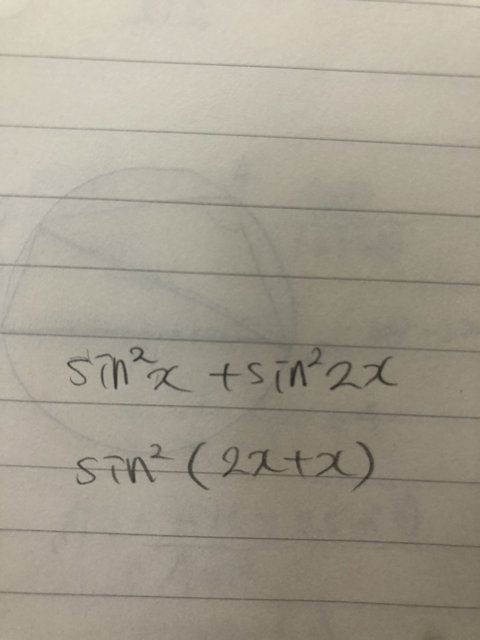 sin²x + sin²2x
sin² (2x+x)